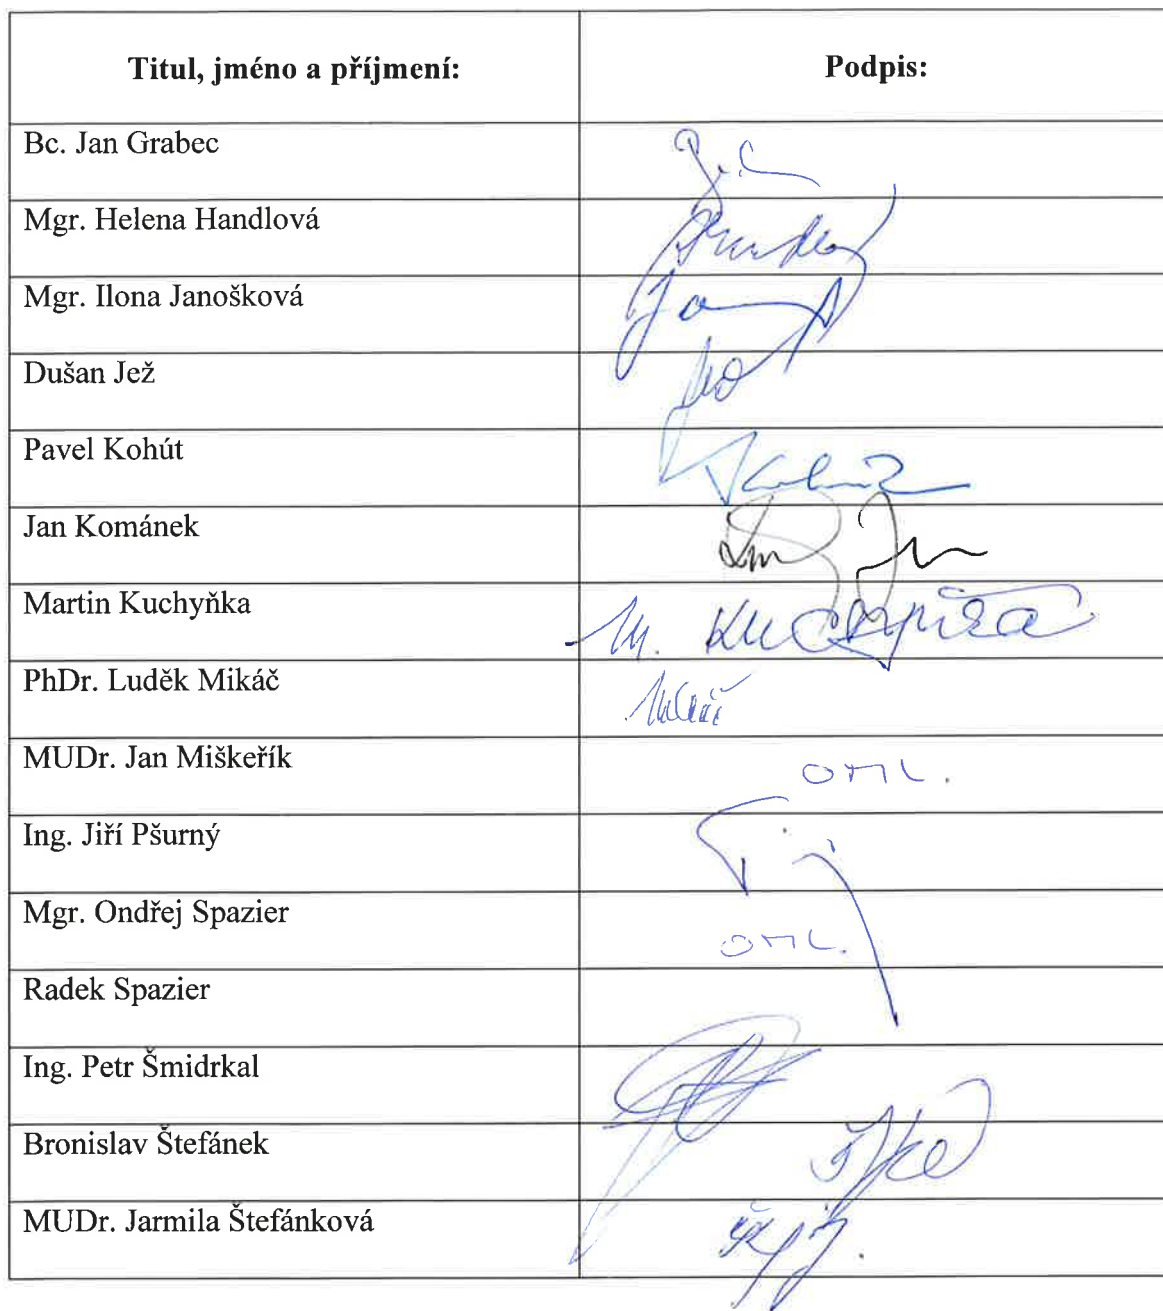 Titul, jméno a příjmení: Podpis:
Bc. Jan Grabec
Mgr. Helena Handlová
Mgr. Ilona Janošková
Dušan Jež
Pavel Kohút
Jan Kománek
Martin Kuchyňka M. Kuchyňka
PhDr. Luděk Mikáč Mikáč
MUDr. Jan Miškeřík OML.
Ing. Jiří Pšurný
Mgr. Ondřej Spazier OML.
Radek Spazier
Ing. Petr Šmidrkal
Bronislav Štefánek
MUDr. Jarmila Štefánková